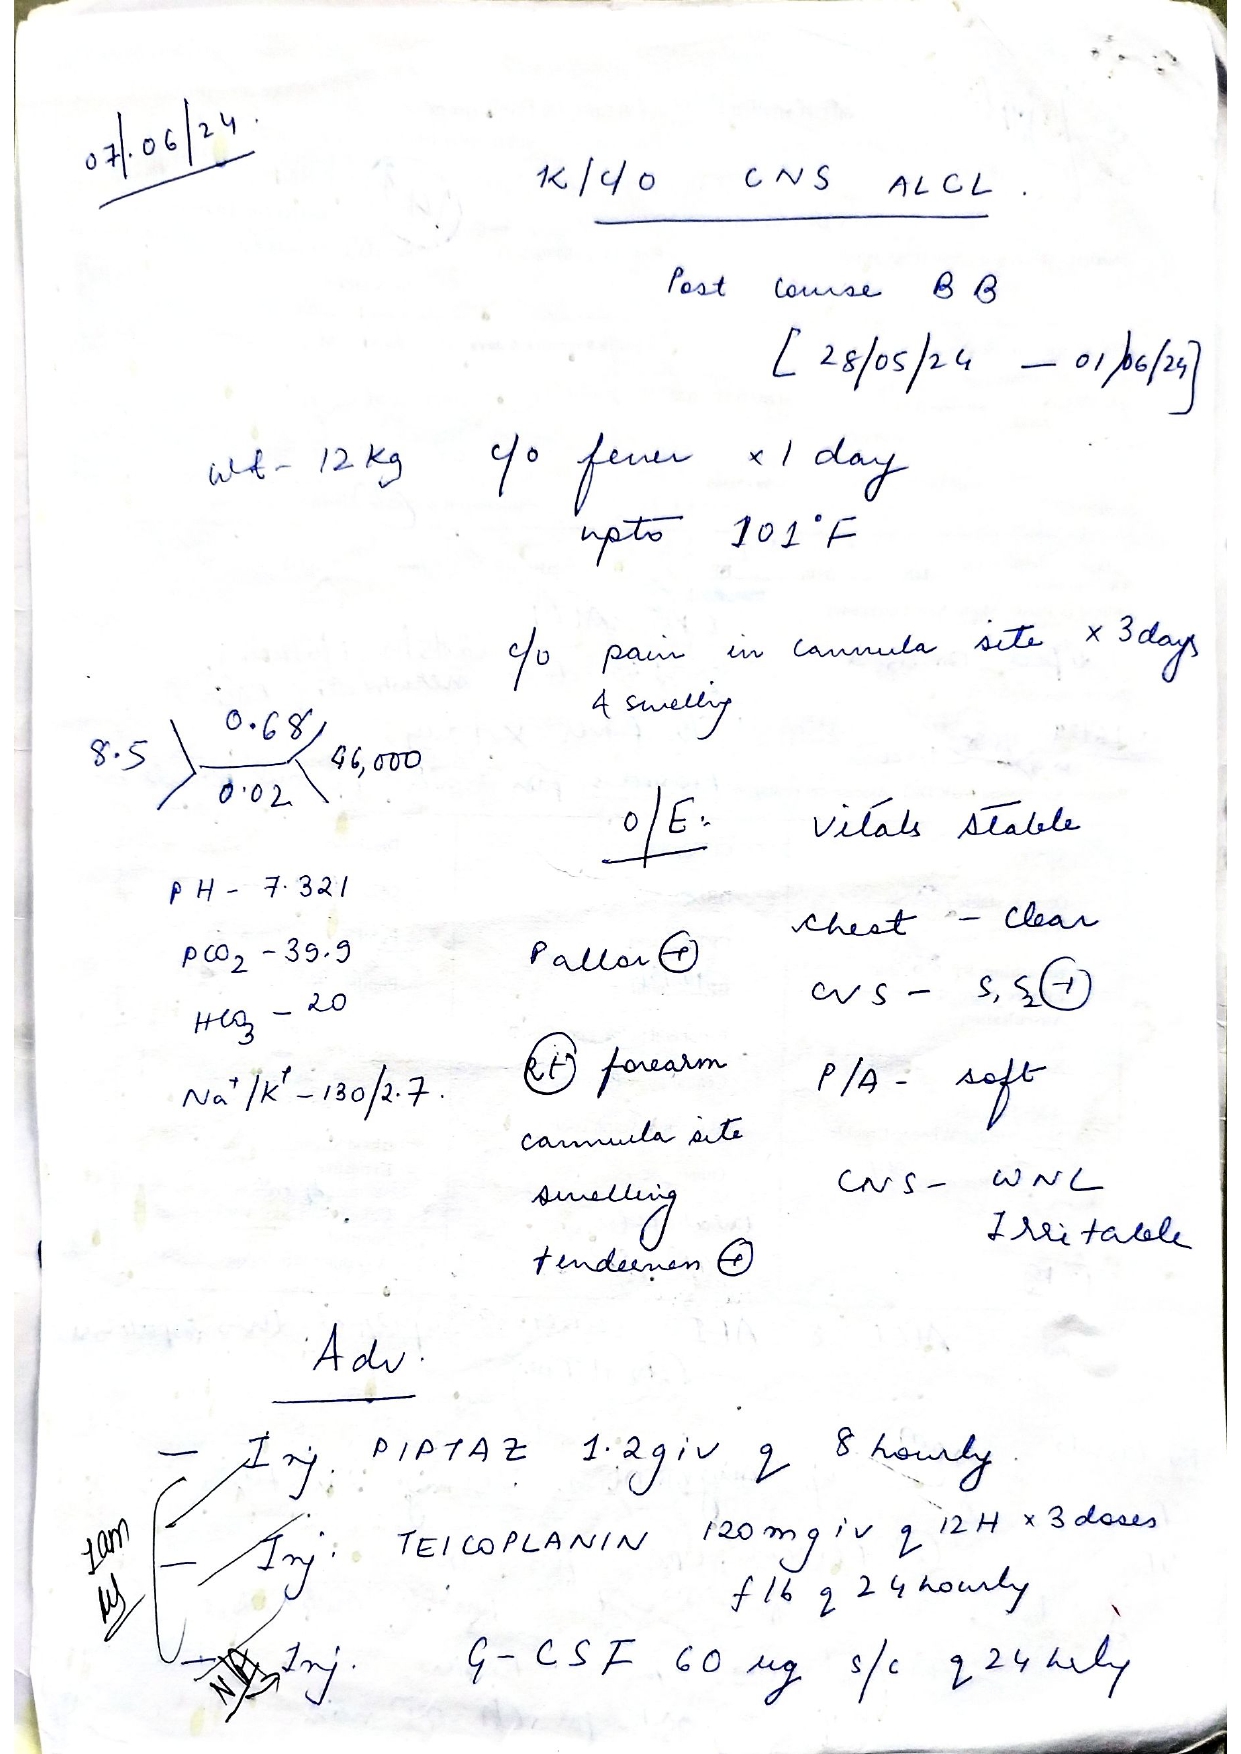 07/06/24.
K/c/o CNS ALCL.
Post course BB
[28/05/24 - 01/06/24]
wt - 12 kg c/o fever x 1 day
upto 101°F
c/o pain in cannula site x 3 days
& swelling
0.68
8.5 46,000
0.02
O/E: Vitals stable
PH - 7.321
chest - clear
PCO2 - 39.9 Pallor +
CVS - S1 S2 +
HCO3 - 20
Rt forearm P/A - soft
Na+/K+ - 130/2.7.
cannula site
swelling CNS - WNL
Irritable
tenderness +
Adv.
- Inj. PIPTAZ 1.2 g iv q 8 hourly.
- Inj. TEICOPLANIN 120 mg iv q 12H x 3 doses
1am
f/b q 24 hourly
- N/A Inj. G-CSF 60 ug s/c q 24 hrly